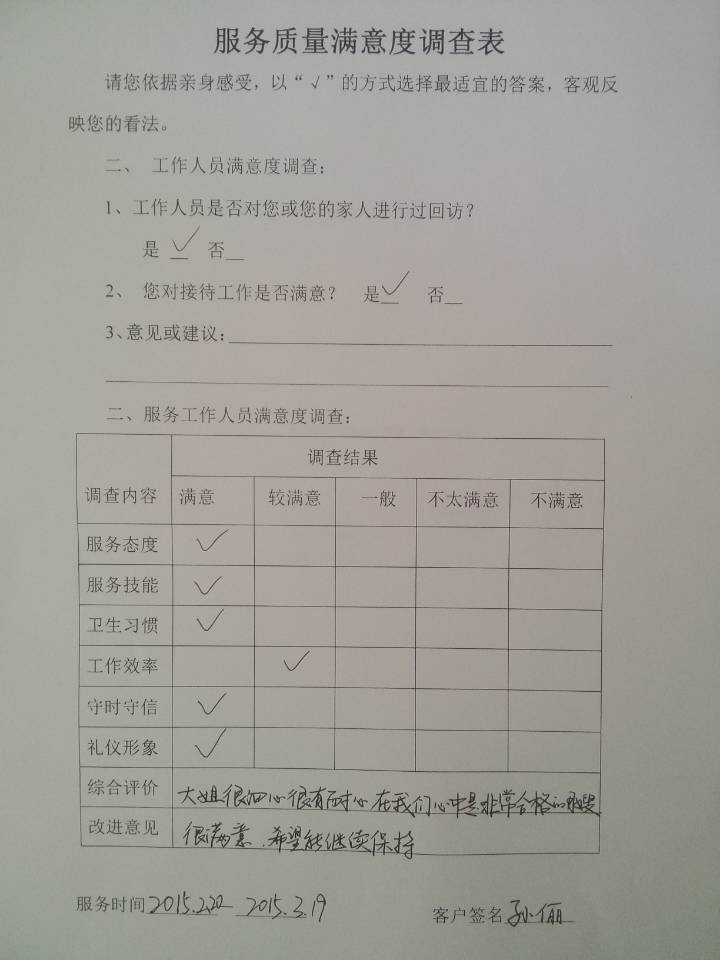 服务质量满意度调查表
请您依据亲身感受，以“√”的方式选择最适宜的答案，客观反
映您的看法。
二、 工作人员满意度调查：
1、工作人员是否对您或您的家人进行过回访？
是 √ 否__
2、 您对接待工作是否满意？ 是√ 否__
3、意见或建议：
二、服务工作人员满意度调查：
调查内容 调查结果
满意 较满意 一般 不太满意 不满意
服务态度 √
服务技能 √
卫生习惯 √
工作效率 √
守时守信 √
礼仪形象 √
综合评价 大姐很细心很有耐心在我们心中是非常合格的
改进意见 很满意.希望能继续保持
服务时间 2015.2.20— 2015.3.19 客户签名 孙俪